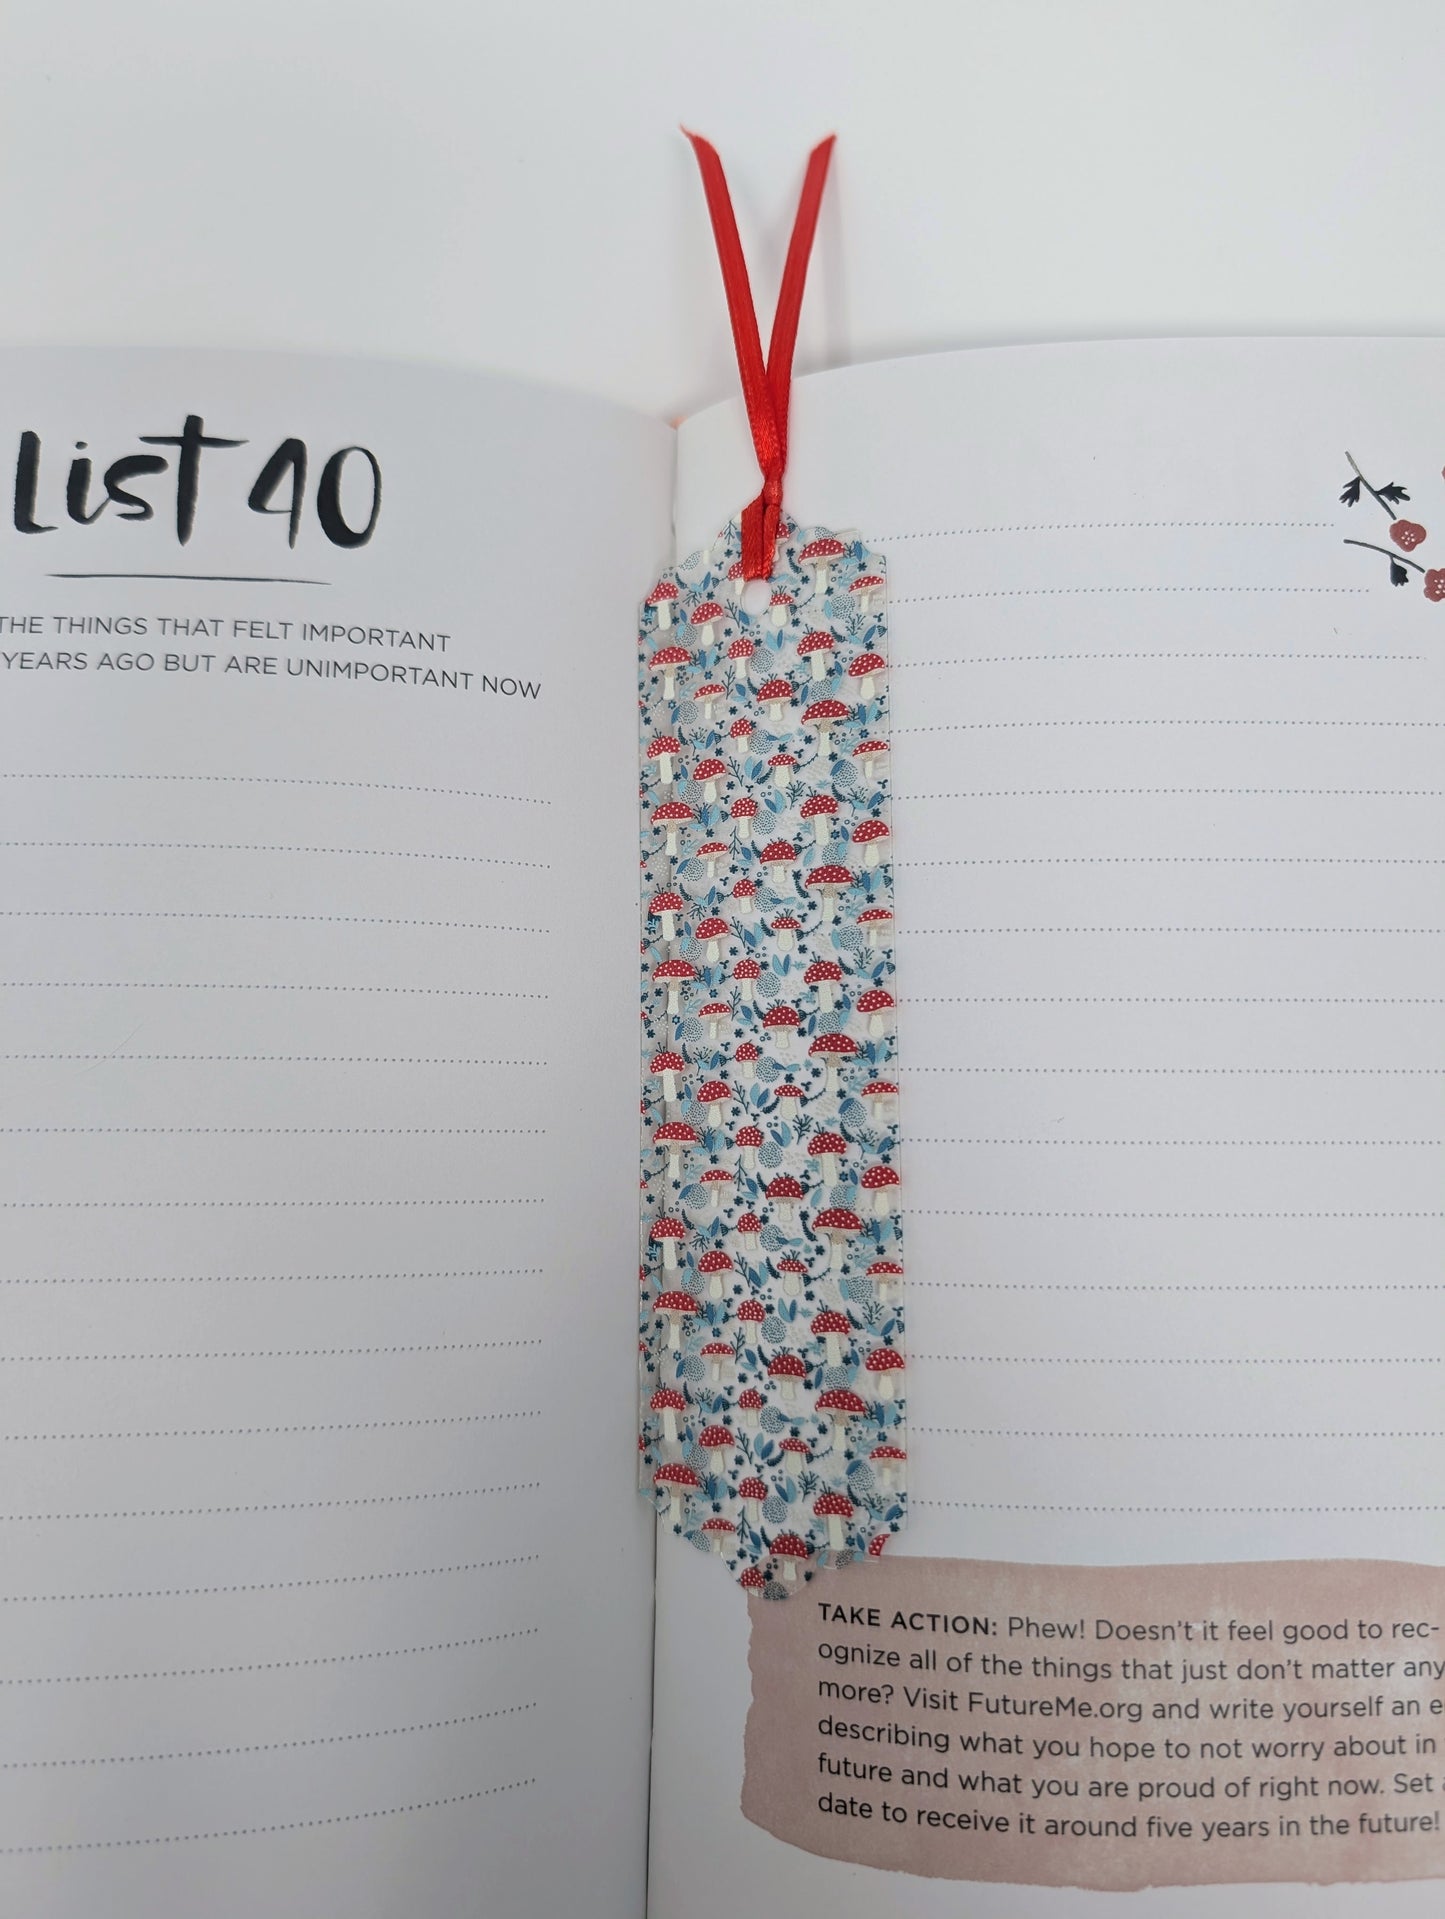 List 40
THE THINGS THAT FELT IMPORTANT
YEARS AGO BUT ARE UNIMPORTANT NOW
TAKE ACTION: Phew! Doesn't it feel good to rec-
ognize all of the things that just don't matter any
more? Visit FutureMe.org and write yourself an e
describing what you hope to not worry about in
future and what you are proud of right now. Set a
date to receive it around five years in the future!